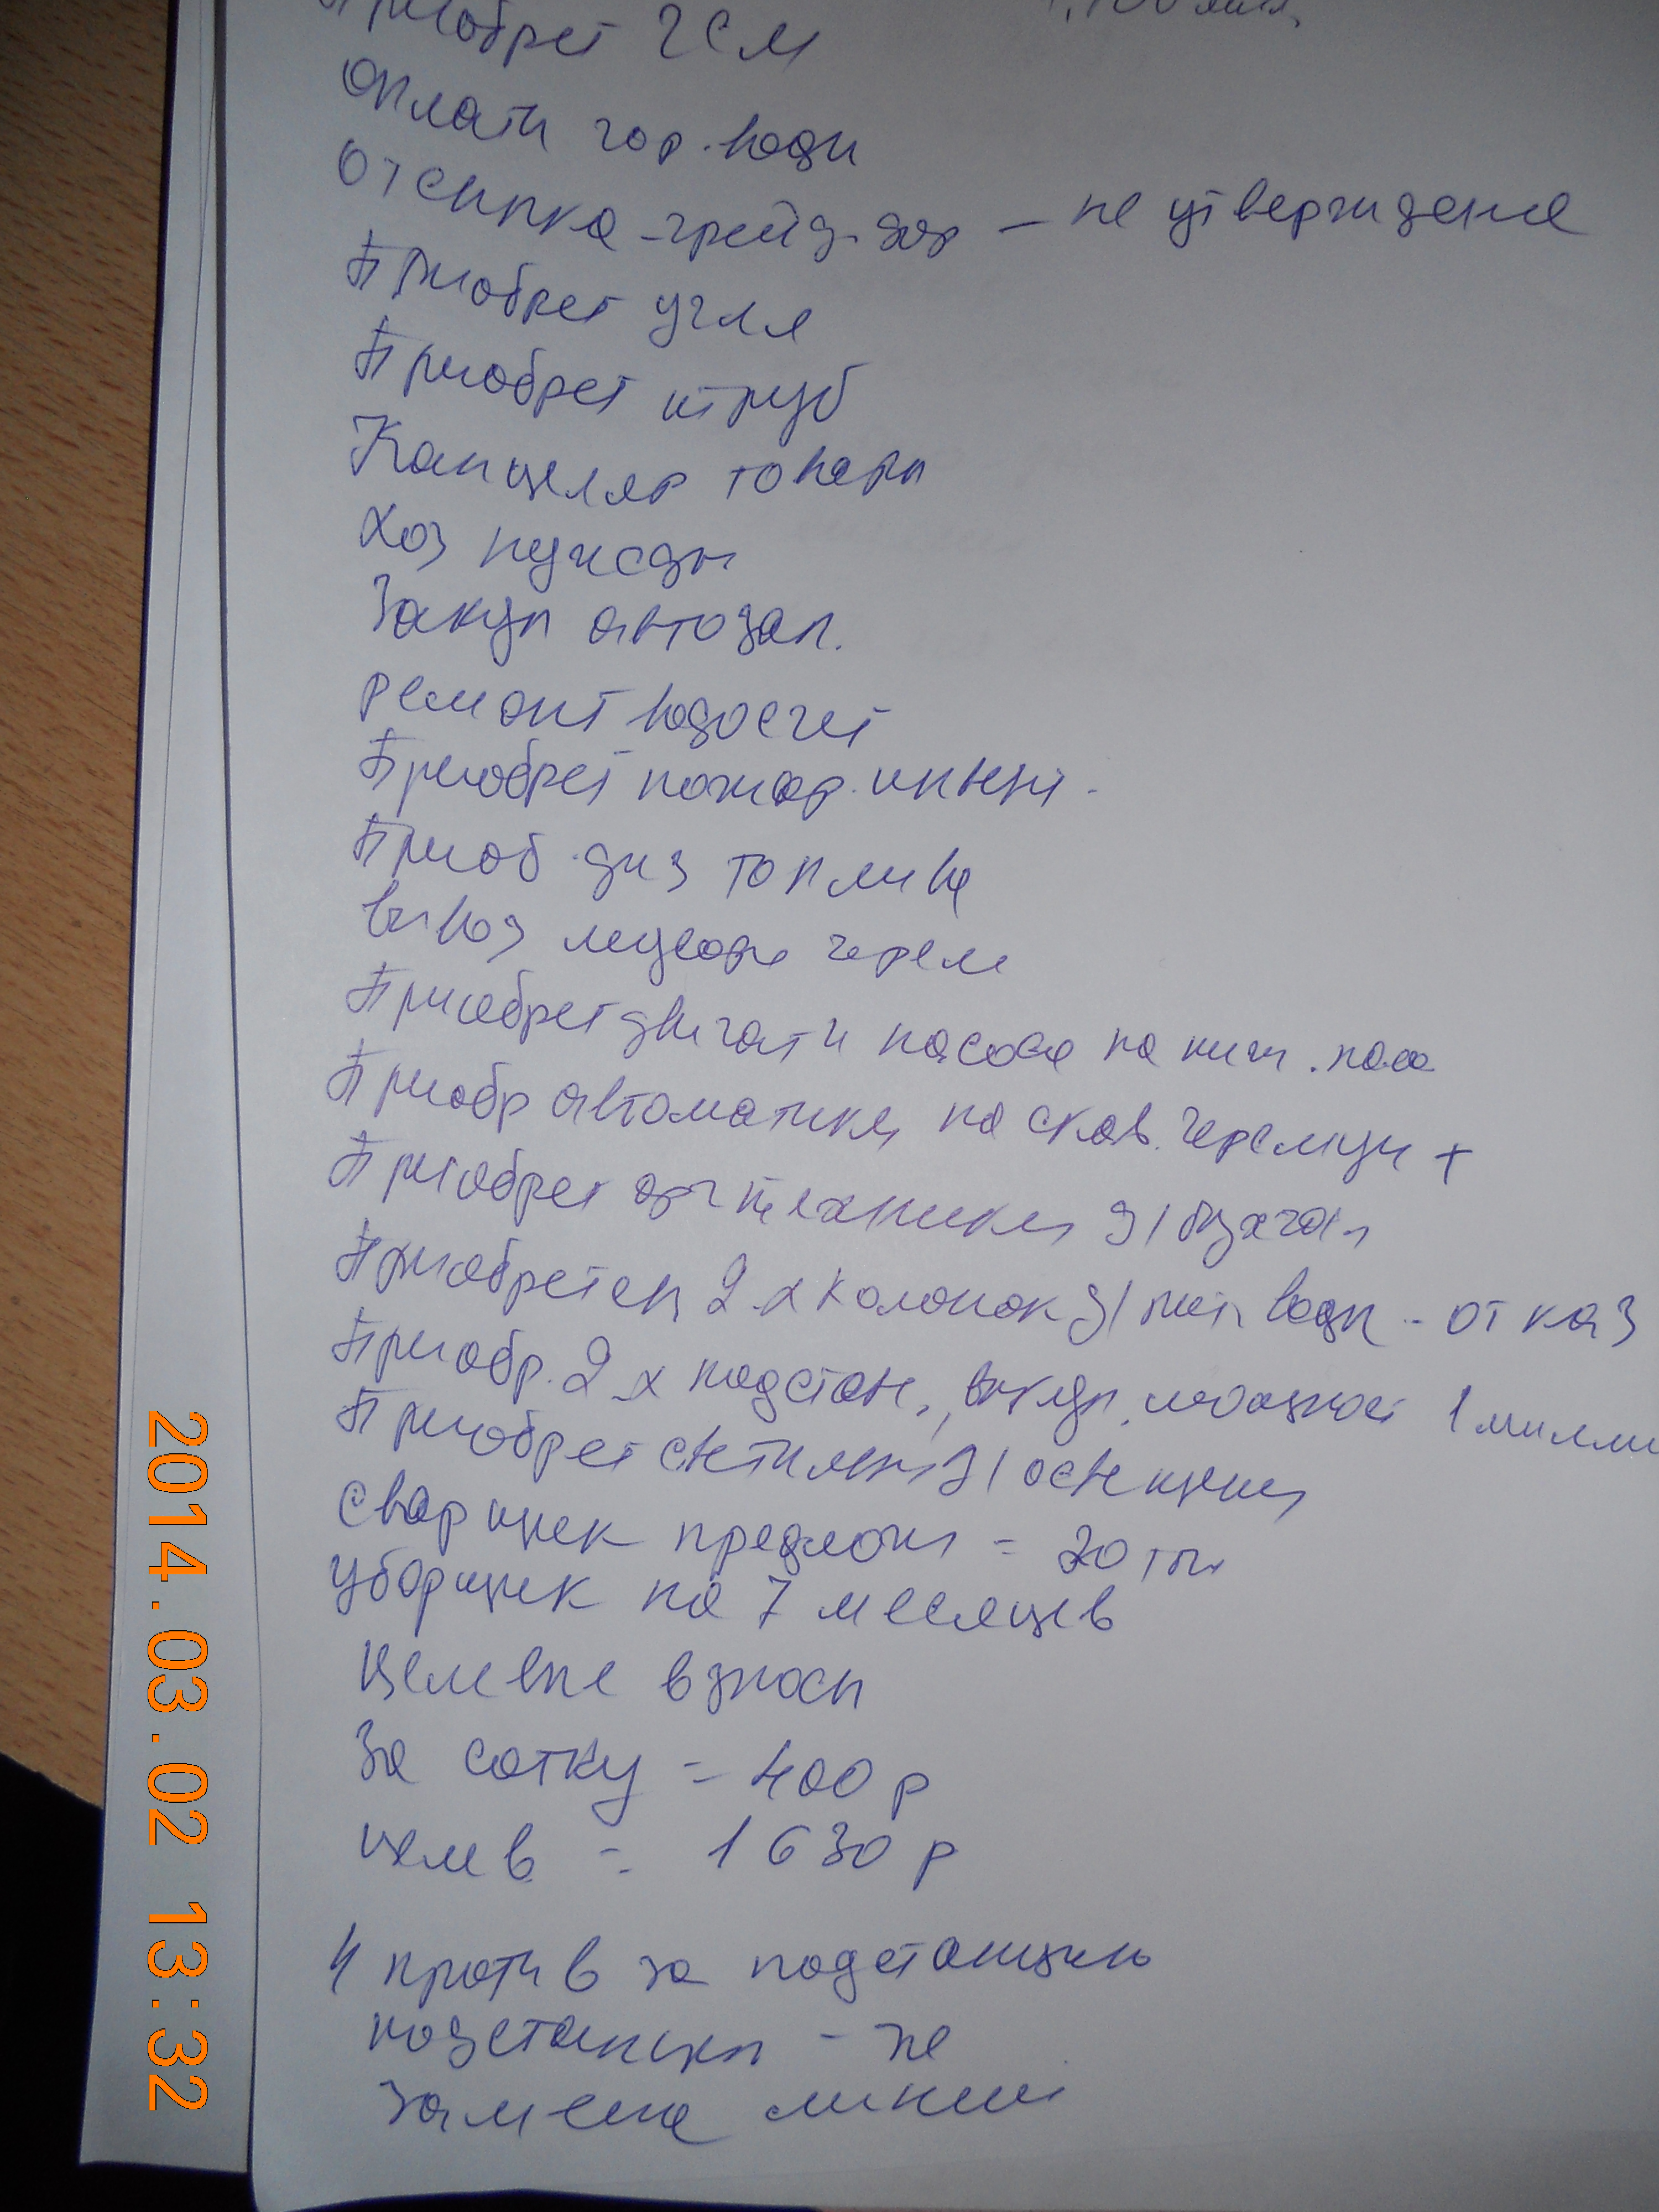 Приобрет ГСМ
Оплати гор. води
Отсыпка - грейд. дор - не утверждена
Приобрет угля
Приобрет труб
Канцеляр товары
Хоз нужды
Закуп автозап.
ремонт водосчет
Приобрет пожар. инвент.
Приоб диз топлива
вывоз мусора черем
Приобрет двигати насоса на
Приобр автоматики на скв. Черемух +
Приобрет оргтехники д/бухгал
Приобретен 2х колонок д/пит. воды - отказ
Приобр. 2х подстан., выкуп. мощност 1 милли
Приобрет светильн д/освещения
Сварщик предлож = 20 тыс
уборщик на 7 месяцев
Целевые взносы
За сотку = 400 р
цел в = 1630 р
4 против за подстанцию
подстанции - не
замена линии
2014.03.02 13:32